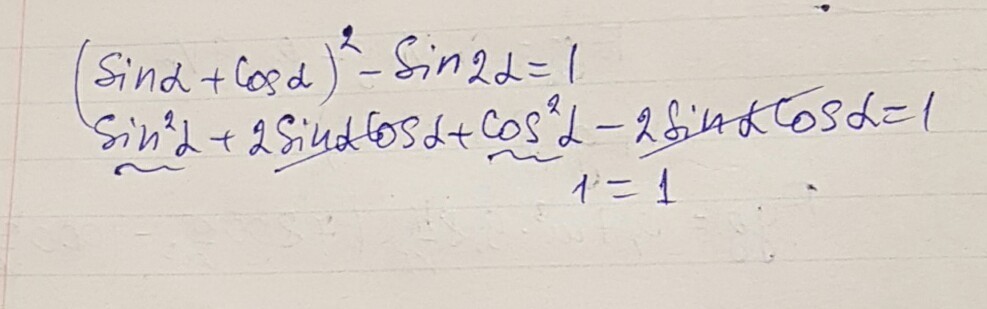 (Sinα + Cosα)² - Sin2α = 1
Sin²α + 2SinαCosα + Cos²α - 2SinαCosα = 1
1 = 1